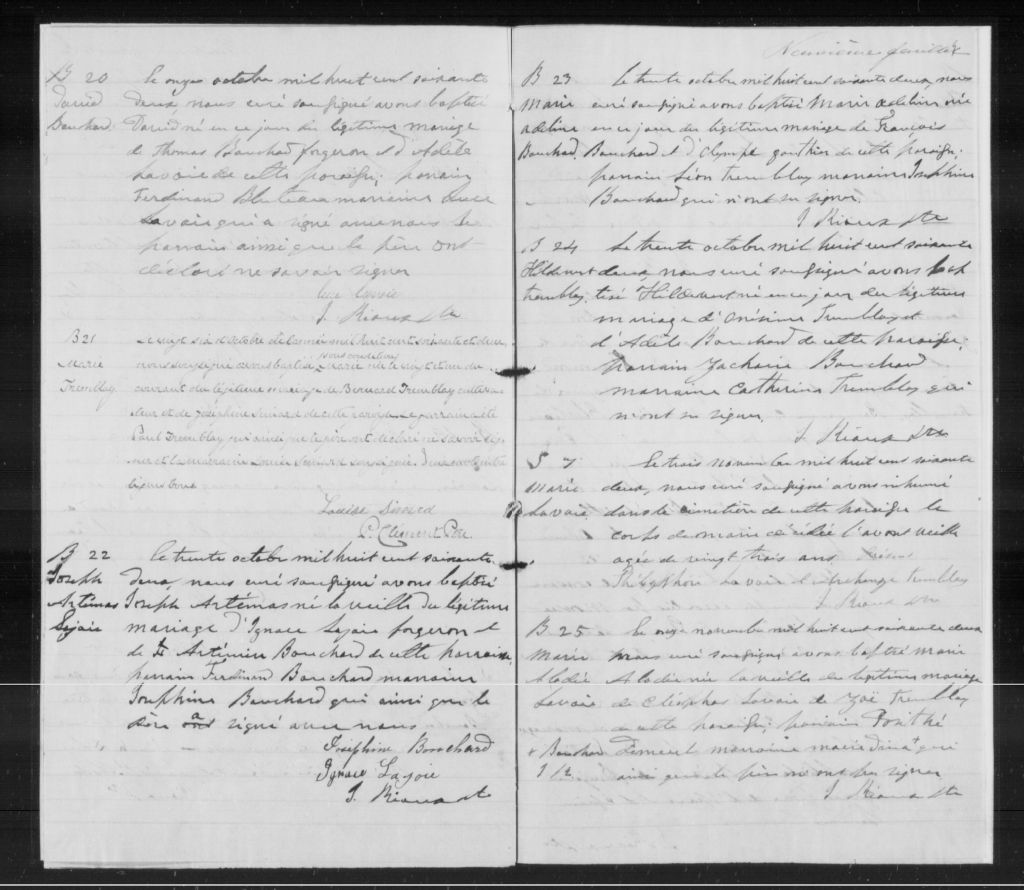 Neuvième feuillet
B 20 Le onze octobre mil huit cent soixante
David deux nous curé soussigné avons baptisé
Bouchard David né en ce jour du légitime mariage
de Thomas Bouchard forgeron et d'Adèle
Savoie de cette paroisse; parrain
Ferdinand marraine Luce
Savoie qui a signé avec nous Le
parrain ainsi que le père ont
déclaré ne savoir signer
Luce Savoie
J. Rioux Ptre
B 21 Le vingt six d'octobre de l'année mil huit cent soixante et deux
nous soussigné avons baptisé sous condition
Marie Marie née le vingt et un du
Tremblay courant du légitime mariage de Bernard Tremblay cultiva-
teur et de Joséphine Simard de cette paroisse. Le parrain a été
Paul Tremblay qui ainsi que le père ont déclaré ne savoir sig-
ner et la marraine Louise Simard soussignée.
bons
Louise Simard
P. Clément Ptre
B 22 Le trente octobre mil huit cent soixante
Joseph deux, nous curé soussigné avons baptisé
Artémas Joseph Artémas né la veille du légitime
Lajoie mariage d'Ignace Lajoie forgeron et
de Artémise Bouchard de cette paroisse,
parrain Ferdinand Bouchard marraine
Josephine Bouchard qui ainsi que le
père a signé avec nous
Joséphine Bouchard
Ignace Lajoie
J. Rioux Ptre
B 23 Le trente octobre mil huit cent soixante deux, nous
Marie curé soussigné avons baptisé Marie Adeline née
Adeline en ce jour du légitime mariage de François
Bouchard Bouchard et d'Olympe Gauthier de cette paroisse;
parrain Léon Tremblay marraine Josephine
Bouchard qui n'ont su signer.
J. Rioux Ptre
B 24 Le trente octobre mil huit cent soixante
Hildevert deux, nous curé soussigné avons bap
Tremblay tisé Hildevert né en ce jour du légitime
mariage d'Onésime Tremblay et
d'Adèle Bouchard de cette paroisse;
Parrain Zacharie Bouchard
marraine Catherine Tremblay qui
n'ont su signer.
J. Rioux Ptre
S 7 Le trois novembre mil huit cent soixante
Marie deux, nous curé soussigné avons inhumé
Savoie dans le cimetière de cette paroisse le
corps de Marie décédée l'avant veille
agée de vingt trois ans
Théligphore Savoie et Tremblay
J. Rioux Ptre
B 25 Le onze novembre mil huit cent soixante deux
Marie nous curé soussigné avons baptisé Marie
Alodie Alodie née la veille du légitime mariage
Savoie de Cléophas Savoie et de Zoë Tremblay
de cette paroisse; parrain
+ Bouchard marraine Marie + qui
J R. ainsi que le père n'ont su signer
J. Rioux Ptre